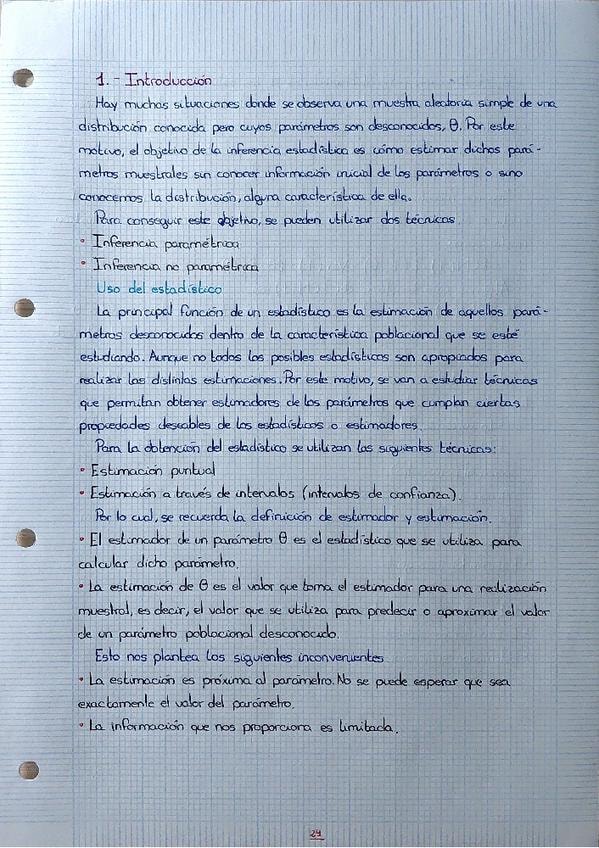 1.- Introducción
Hay muchas situaciones donde se observa una muestra aleatoria simple de una
distribución conocida pero cuyos parámetros son desconocidos, θ. Por este
motivo, el objetivo de la inferencia estadística es cómo estimar dichos pará-
metros muestrales sin conocer información inicial de los parámetros o sino
conocemos la distribución, alguna característica de ella.
Para conseguir este objetivo, se pueden utilizar dos técnicas
• Inferencia paramétrica
• Inferencia no paramétrica
Uso del estadístico
La principal función de un estadístico es la estimación de aquellos pará-
metros desconocidos dentro de la característica poblacional que se esté
estudiando. Aunque no todos los posibles estadísticos son apropiados para
realizar las distintas estimaciones. Por este motivo, se van a estudiar técnicas
que permitan obtener estimadores de los parámetros que cumplan ciertas
propiedades deseables de los estadísticos o estimadores.
Para la obtención del estadístico se utilizan las siguientes técnicas:
• Estimación puntual
• Estimación a través de intervalos (intervalos de confianza).
Por lo cual, se recuerda la definición de estimador y estimación.
• El estimador de un parámetro θ es el estadístico que se utiliza para
calcular dicho parámetro.
• La estimación de θ es el valor que toma el estimador para una realización
muestral, es decir, el valor que se utiliza para predecir o aproximar el valor
de un parámetro poblacional desconocido.
Esto nos plantea los siguientes inconvenientes
• La estimación es próxima al parámetro. No se puede esperar que sea
exactamente el valor del parámetro.
• La información que nos proporciona es limitada.
24